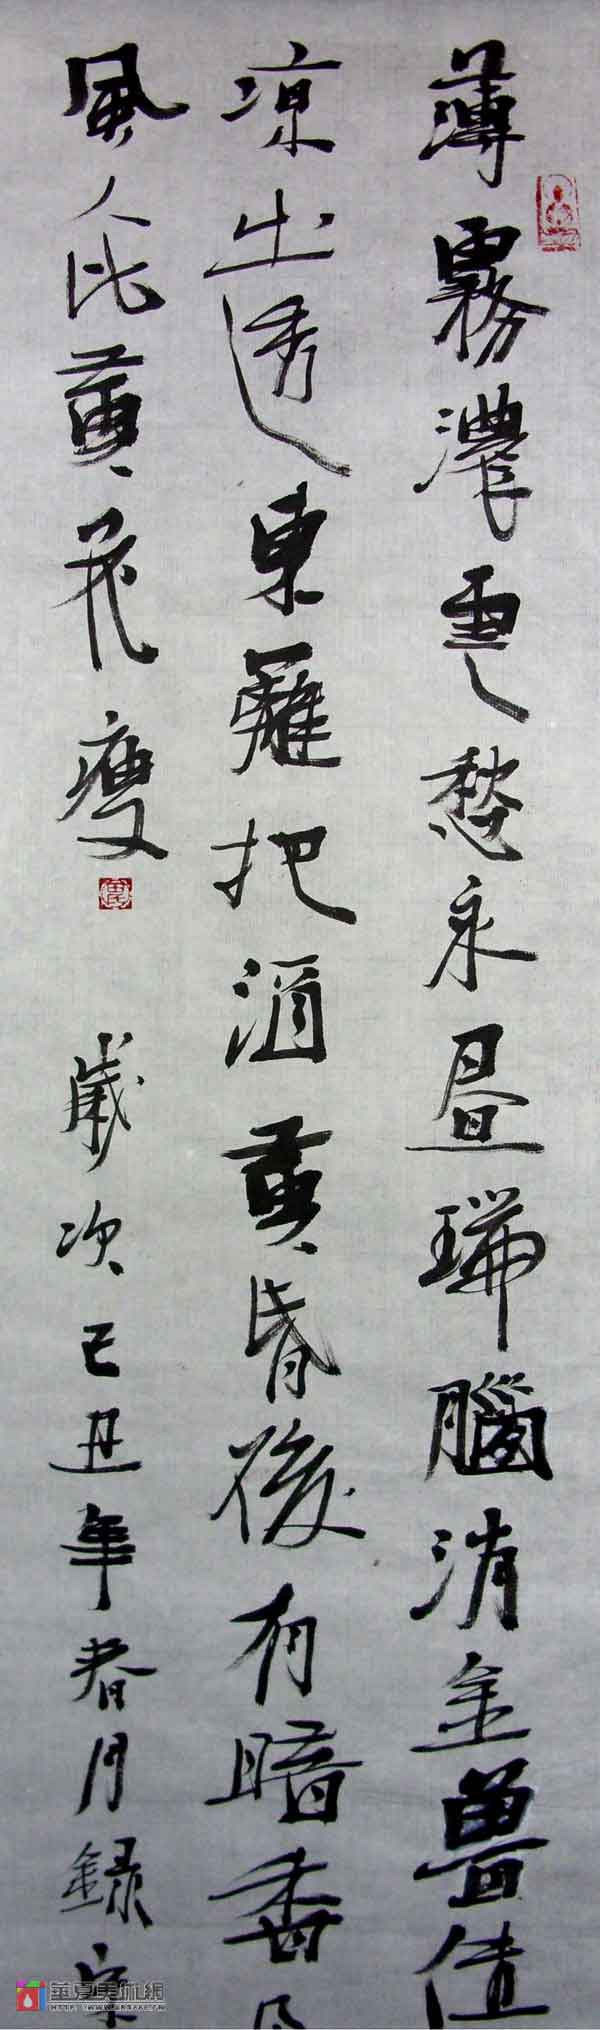 薄霧濃雲愁永晝瑞腦消金獸佳
凉出透東籬把酒黃昏後有暗香
風人比黃花瘦
歲次己丑年春月錄宋
華夏美術網